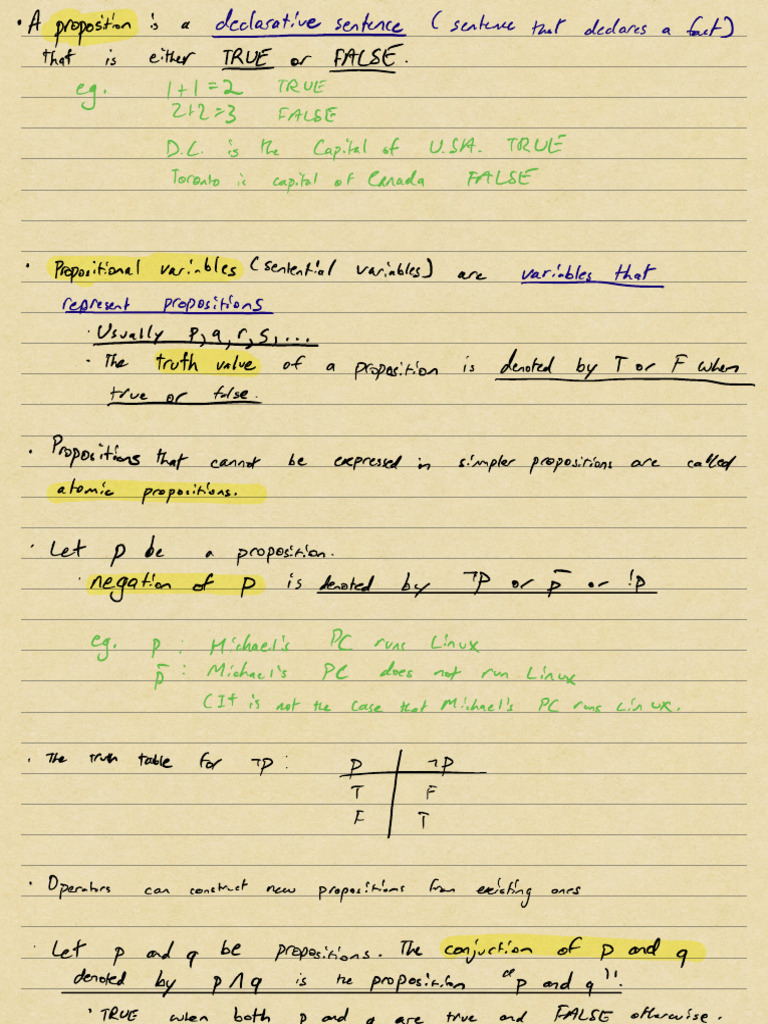 • A proposition is a declarative sentence (sentence that declares a fact)
that is either TRUE or FALSE.
eg. 1+1=2 TRUE
2+2=3 FALSE
D.C. is the Capital of U.S.A. TRUE
Toronto is capital of Canada FALSE
• Propositional variables (sentential variables) are variables that
represent propositions
• Usually p, q, r, s, ...
• The truth value of a proposition is denoted by T or F when
true or false.
• Propositions that cannot be expressed in simpler propositions are called
atomic propositions.
• Let p be a proposition.
• negation of p is denoted by ¬p or p̅ or !p
eg. p : Michael's PC runs Linux
p̅ : Michael's PC does not run Linux
(It is not the case that Michael's PC runs Linux.
• The truth table for ¬p : p ¬p
T F
F T
• Operators can construct new propositions from existing ones
• Let p and q be propositions. The conjuction of p and q
denoted by p ∧ q is the proposition "p and q".
• TRUE when both p and q are true and FALSE otherwise.